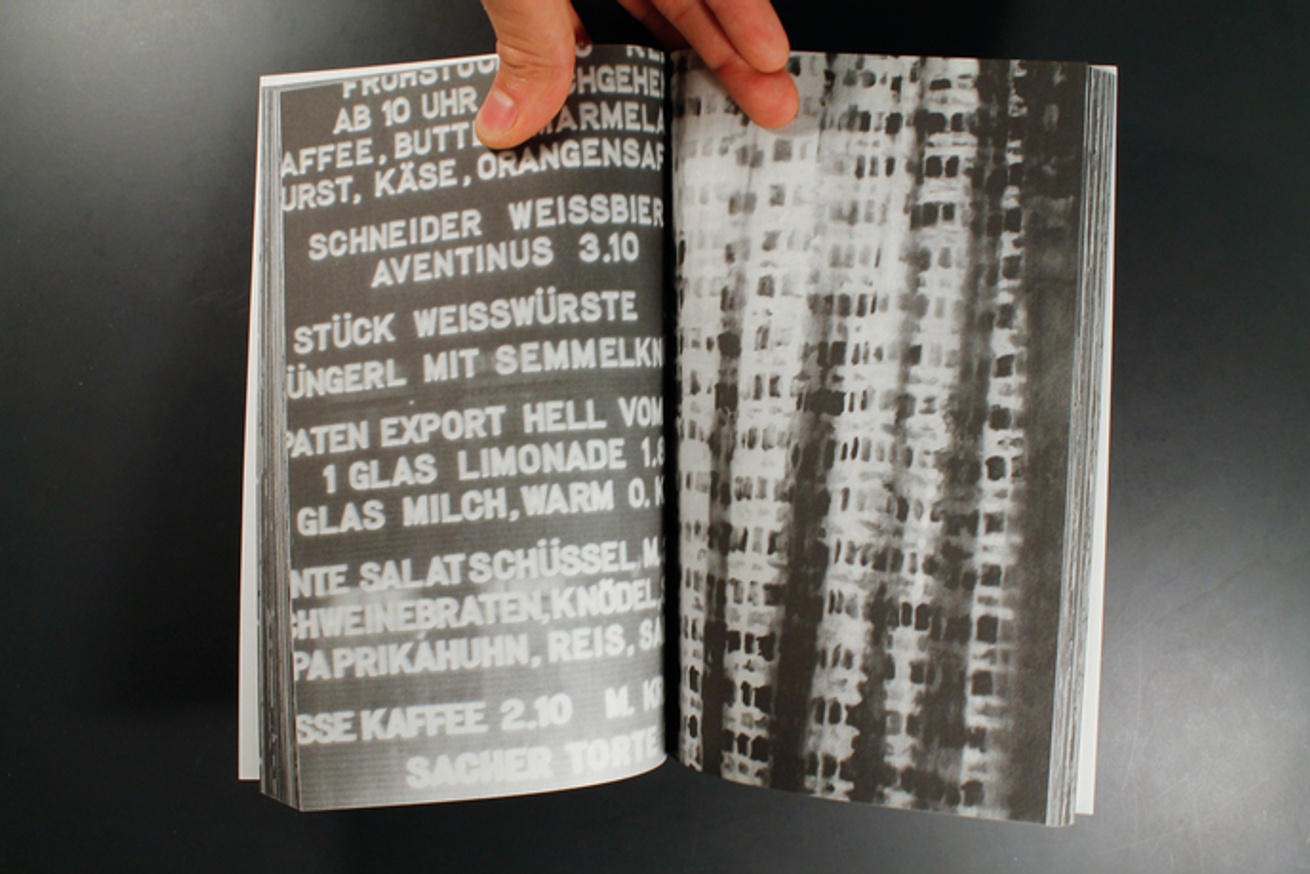 FRÜHSTÜC
AB 10 UHR CHGEHE
AFFEE, BUTT MARMELA
URST, KÄSE, ORANGENSAF
SCHNEIDER WEISSBIER
AVENTINUS 3.10
STÜCK WEISSWÜRSTE
ÜNGERL MIT SEMMELKN
PATEN EXPORT HELL VOM
1 GLAS LIMONADE 1.8
GLAS MILCH, WARM O. K
NTE SALATSCHÜSSEL, M.
CHWEINEBRATEN, KNÖDEL,
PAPRIKAHUHN, REIS, SA
SSE KAFFEE 2.10 M. K
SACHER TORTE